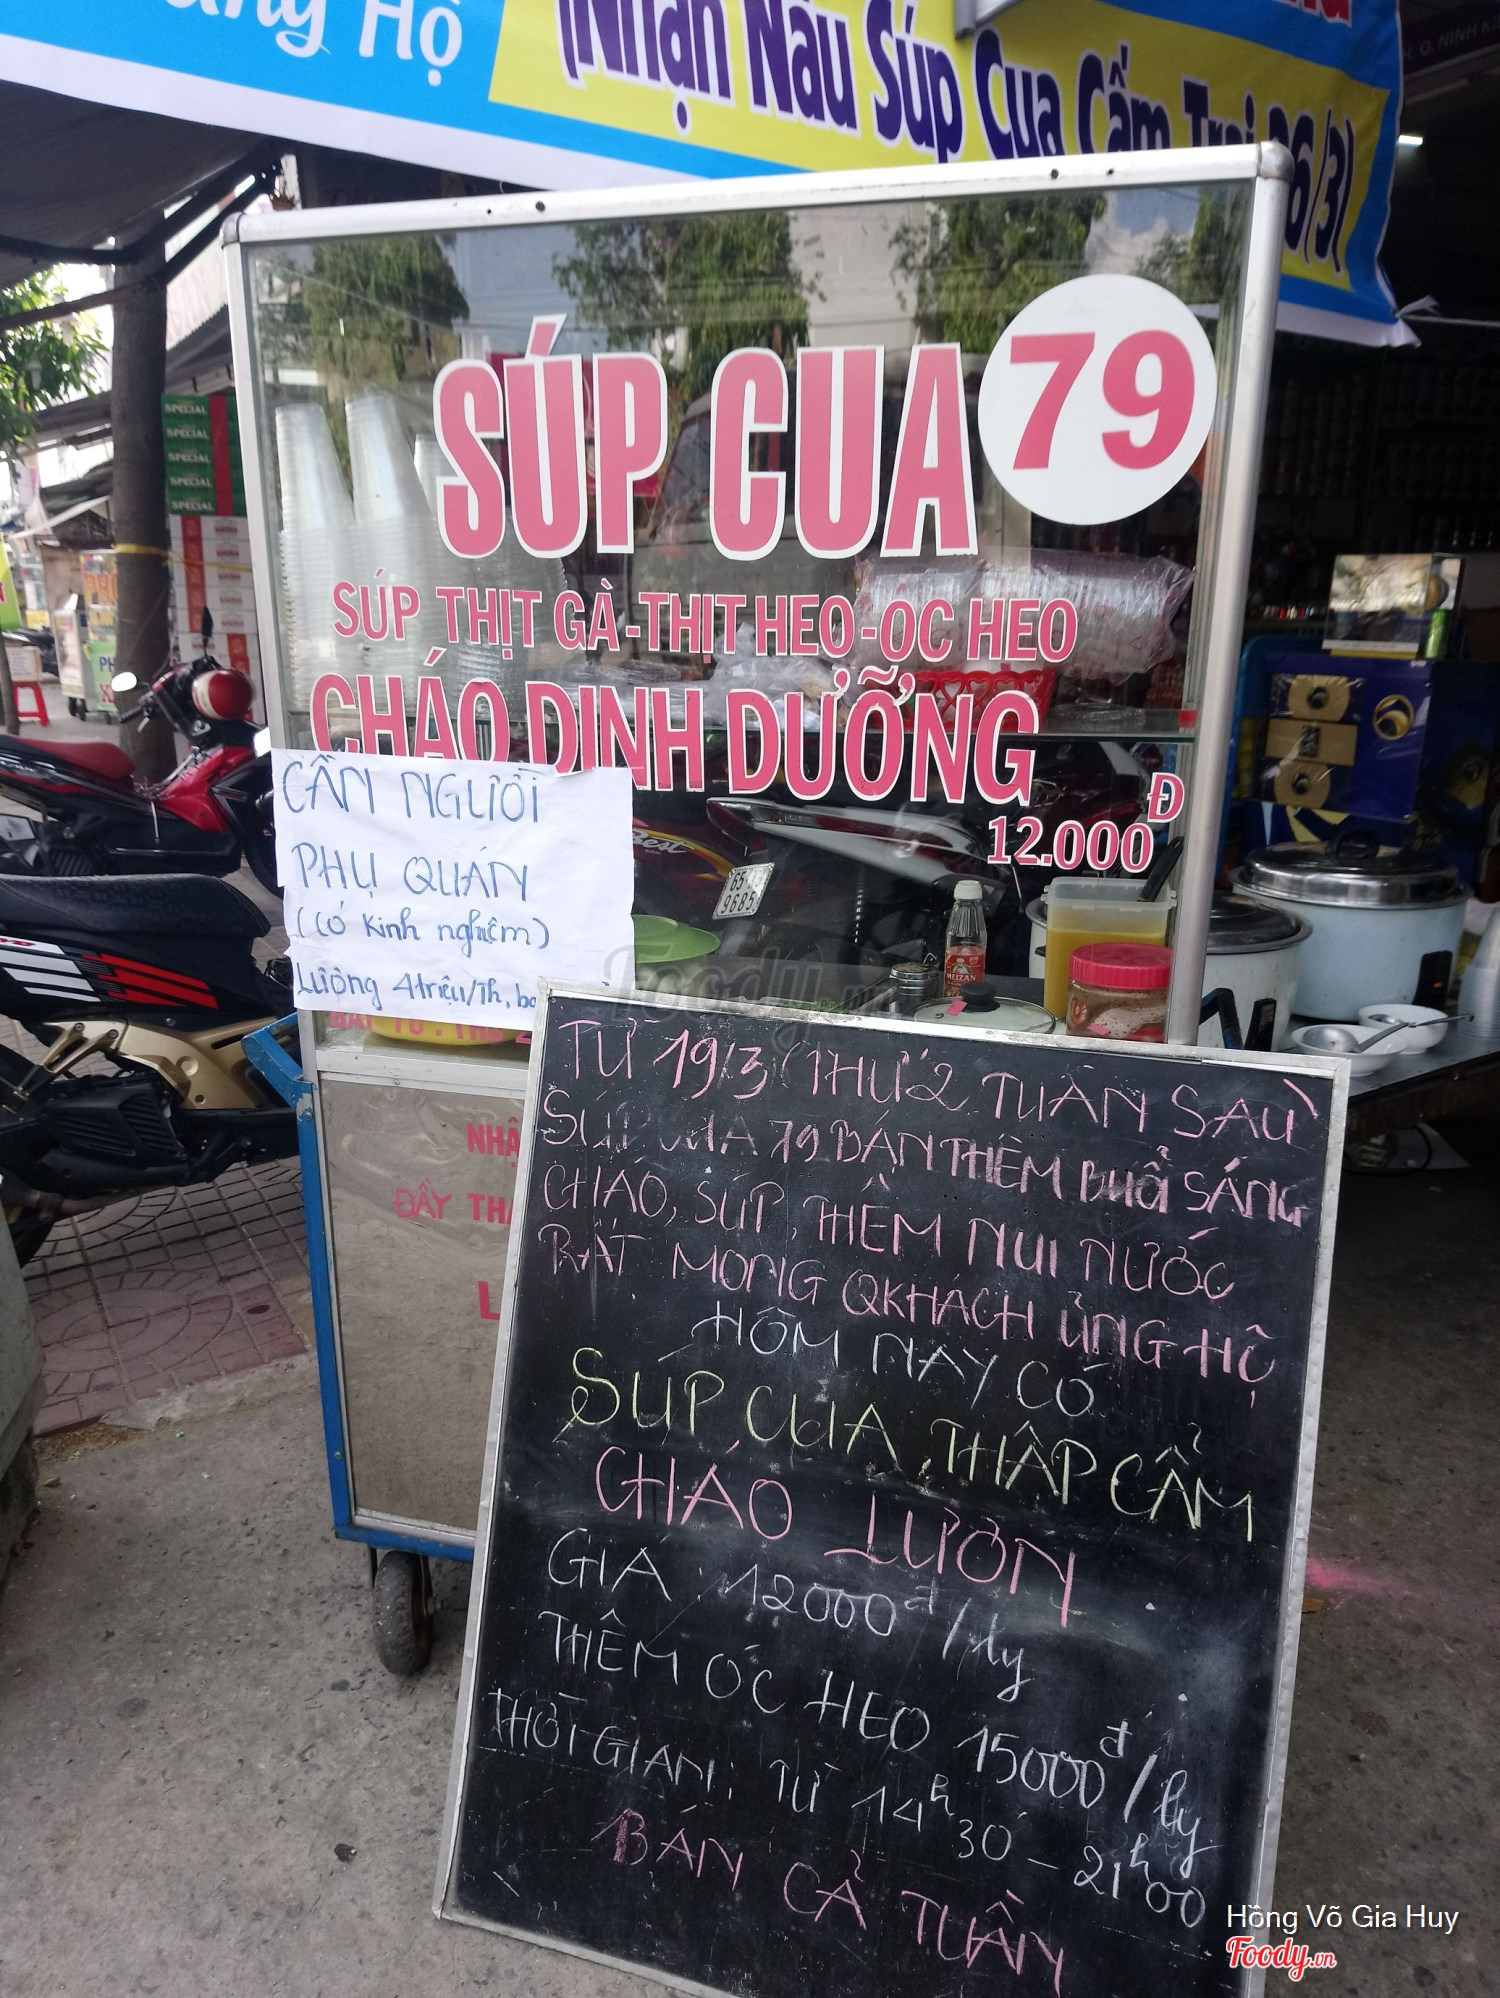 Hộ
(Nhận Nấu Súp Cua Cắm Trại 26/3)
Q. NINH
SÚP CUA 79
SÚP THỊT GÀ-THỊT HEO-ÓC HEO
CHÁO DINH DƯỠNG
12.000Đ
SPECIAL
SPECIAL
SPECIAL
SPECIAL
SPECIAL
CẦN NGƯỜI
PHỤ QUÁN
(Có kinh nghiệm)
Lương 4triệu/Th,
65
9685
MEIZAN
NHẬ
ĐẦY THÁ
L
TỪ 19/3 (THỨ 2 TUẦN SAU)
SÚP CUA 79 BÁN THÊM BUỔI SÁNG
CHÁO, SÚP, THÊM NUI NƯỚC
RẤT MONG QKHÁCH ỦNG HỘ
HÔM NAY CÓ
SÚP CUA, THẬP CẨM
CHÁO LƯƠN
GIÁ: 12000đ/ly
THÊM ÓC HEO 15000đ/ly
THỜI GIAN: TỪ 14h30 - 21h00
BÁN CẢ TUẦN
Hồng Võ Gia Huy
Foody.vn